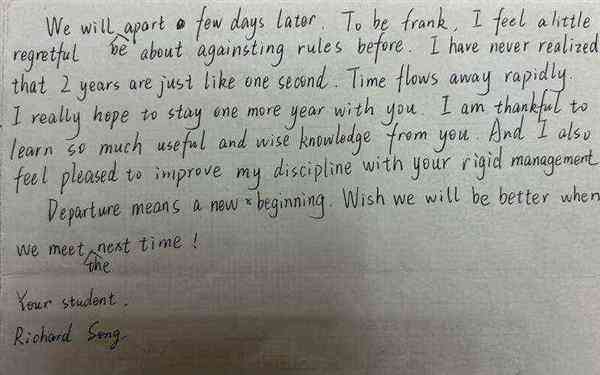 We will be apart a few days later. To be frank, I feel a little
regretful about againsting rules before. I have never realized
that 2 years are just like one second. Time flows away rapidly.
I really hope to stay one more year with you. I am thankful to
learn so much useful and wise knowledge from you. And I also
feel pleased to improve my discipline with your rigid management
Departure means a new beginning. Wish we will be better when
we meet the next time!
Your student.
Richard Song